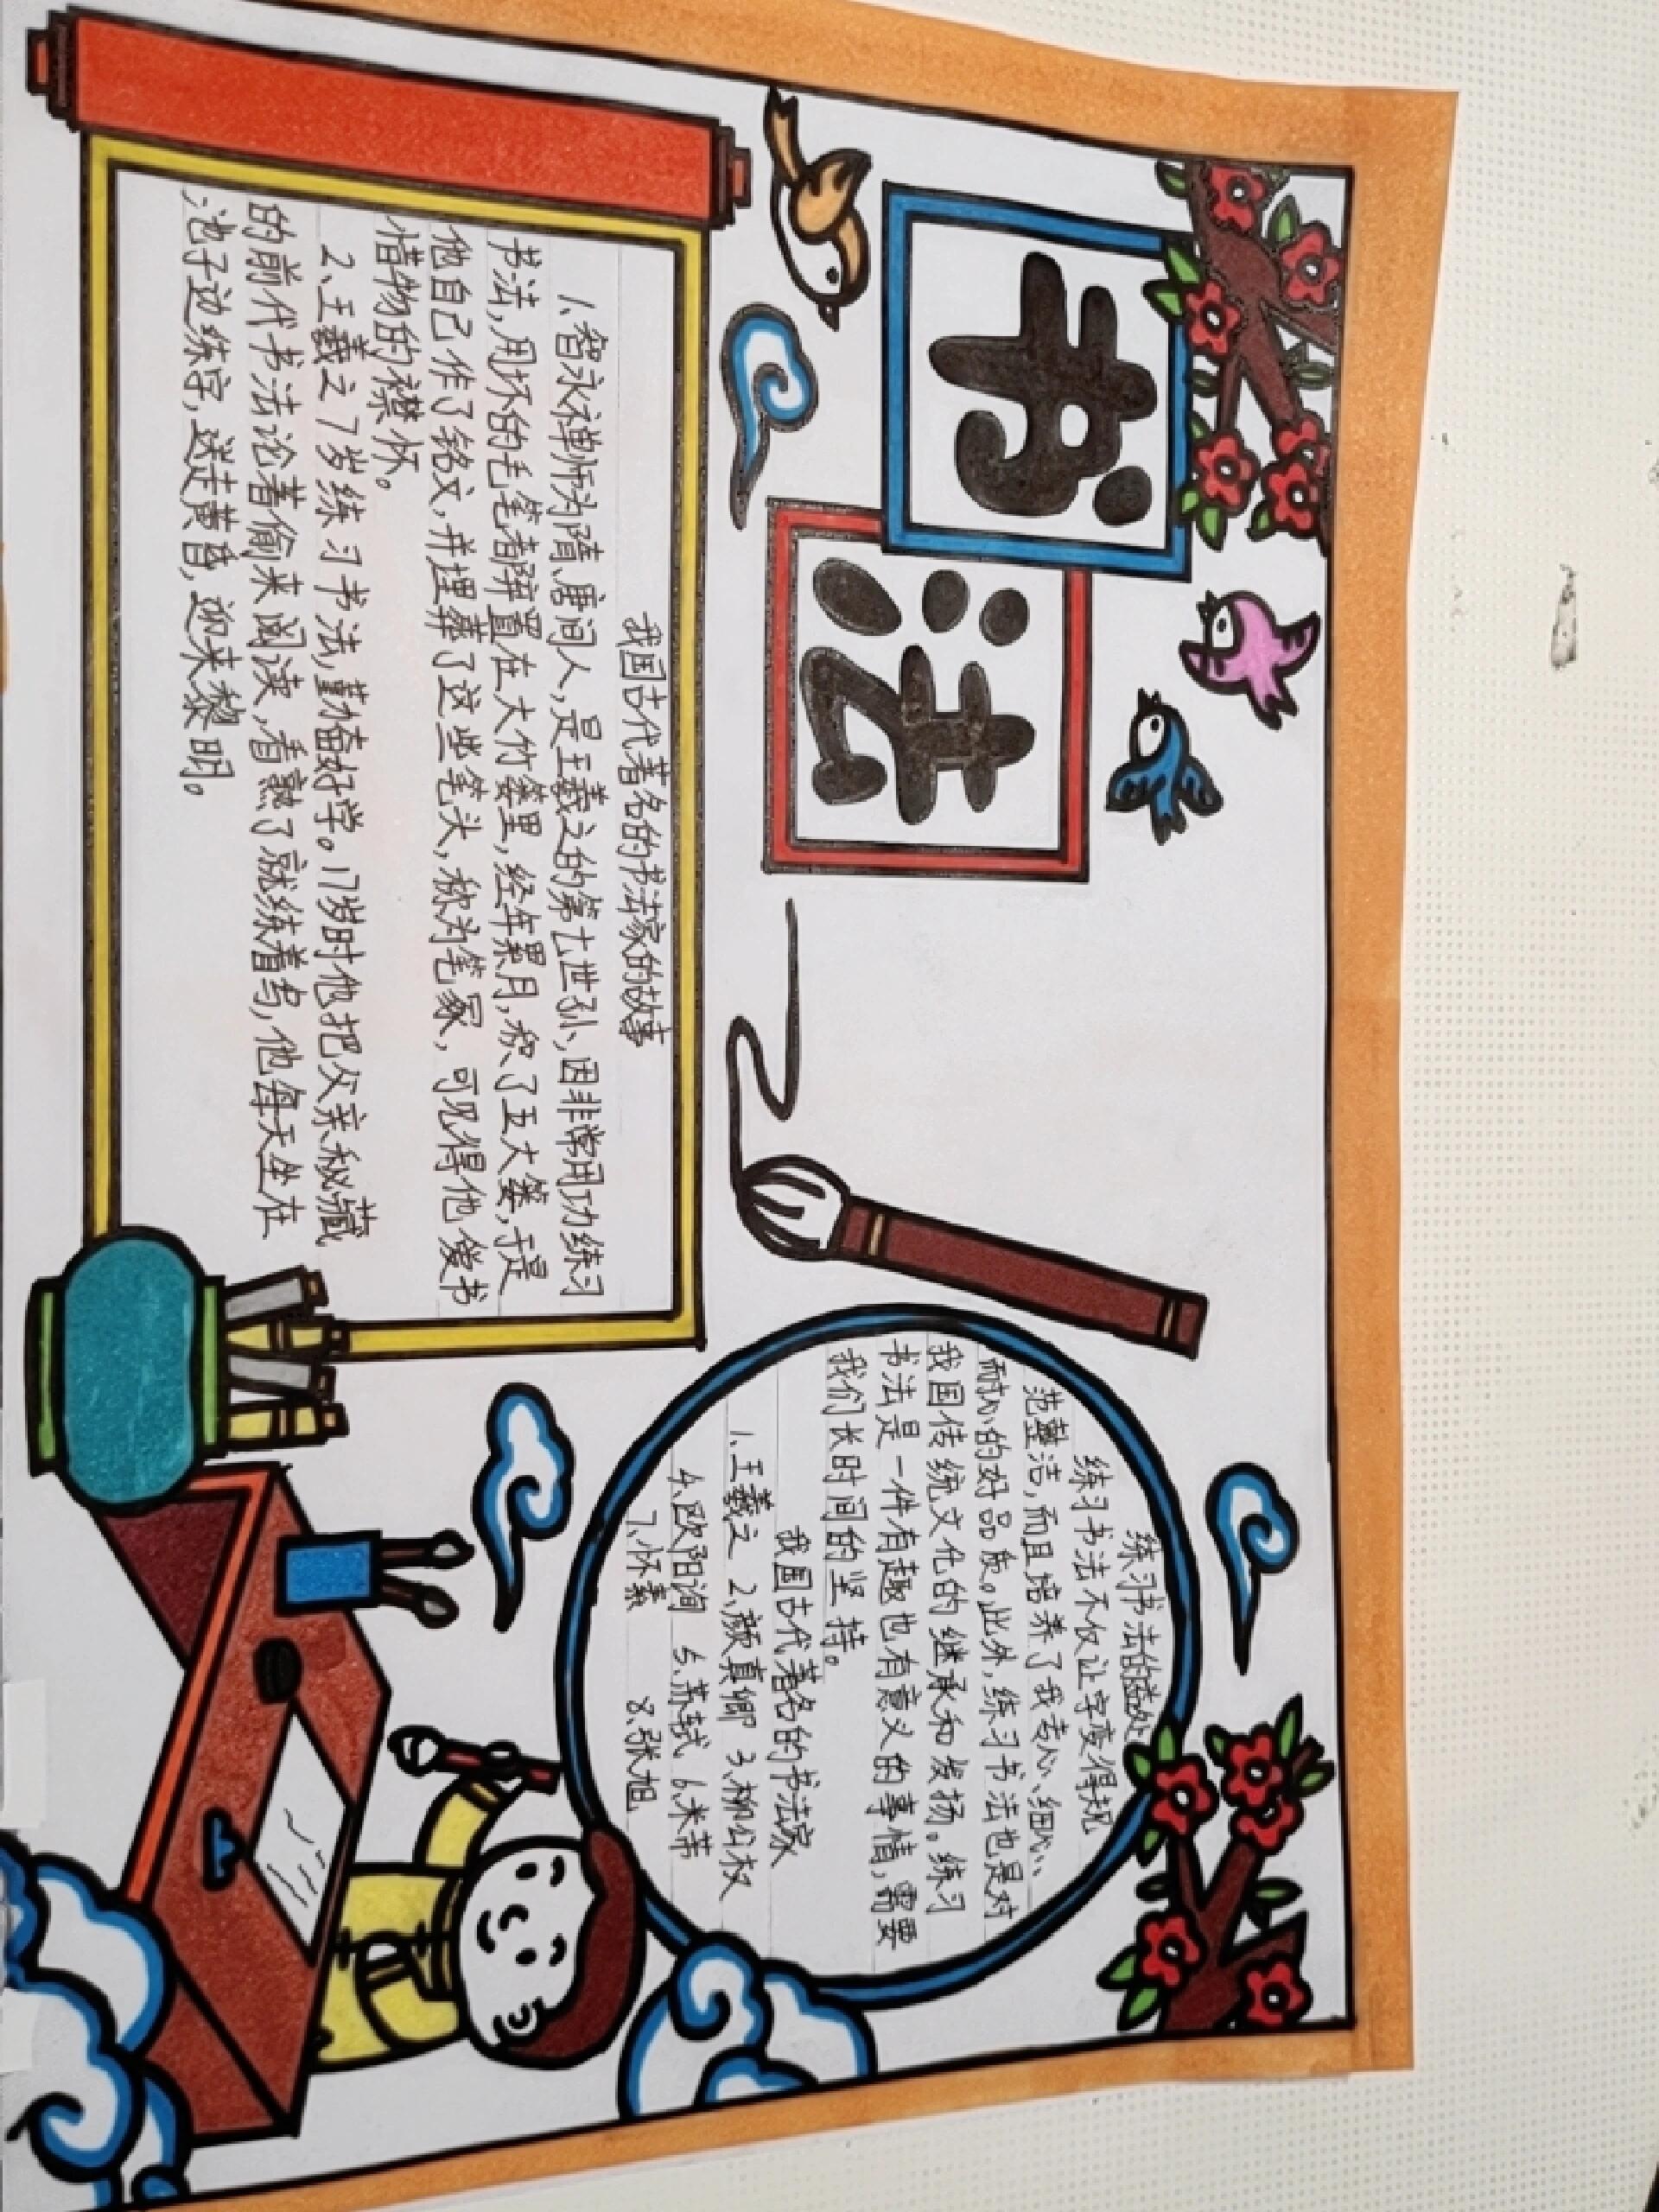 书法
练习书法的益处
练习书法不仅让字变得规
范整洁,而且培养了我专心、细心、
耐心的好品质。此外,练习书法也是对
我国传统文化的继承和发扬。练习
书法是一件有趣也有意义的事情,需要
我们长时间的坚持。
我国古代著名的书法家
1、王羲之 2、颜真卿 3、柳公权
4、欧阳询 5、苏轼 6、米芾
7、怀素 8、张旭
我国古代著名的书法家的故事
1、智永禅师为隋、唐间人,是王羲之的第七世孙,因非常用功练习
书法,用坏的毛笔都弃置在大竹篓里,经年累月,积了五大篓,于是
他自己作了铭文,并埋葬了这些笔头,称为笔冢,可见得他爱书
惜物的襟怀。
2、王羲之7岁练习书法,勤奋好学。17岁时他把父亲秘藏
的前代书法论著偷来阅读,看熟了就练着写,他每天坐在
池子边练字,送走黄昏,迎来黎明。